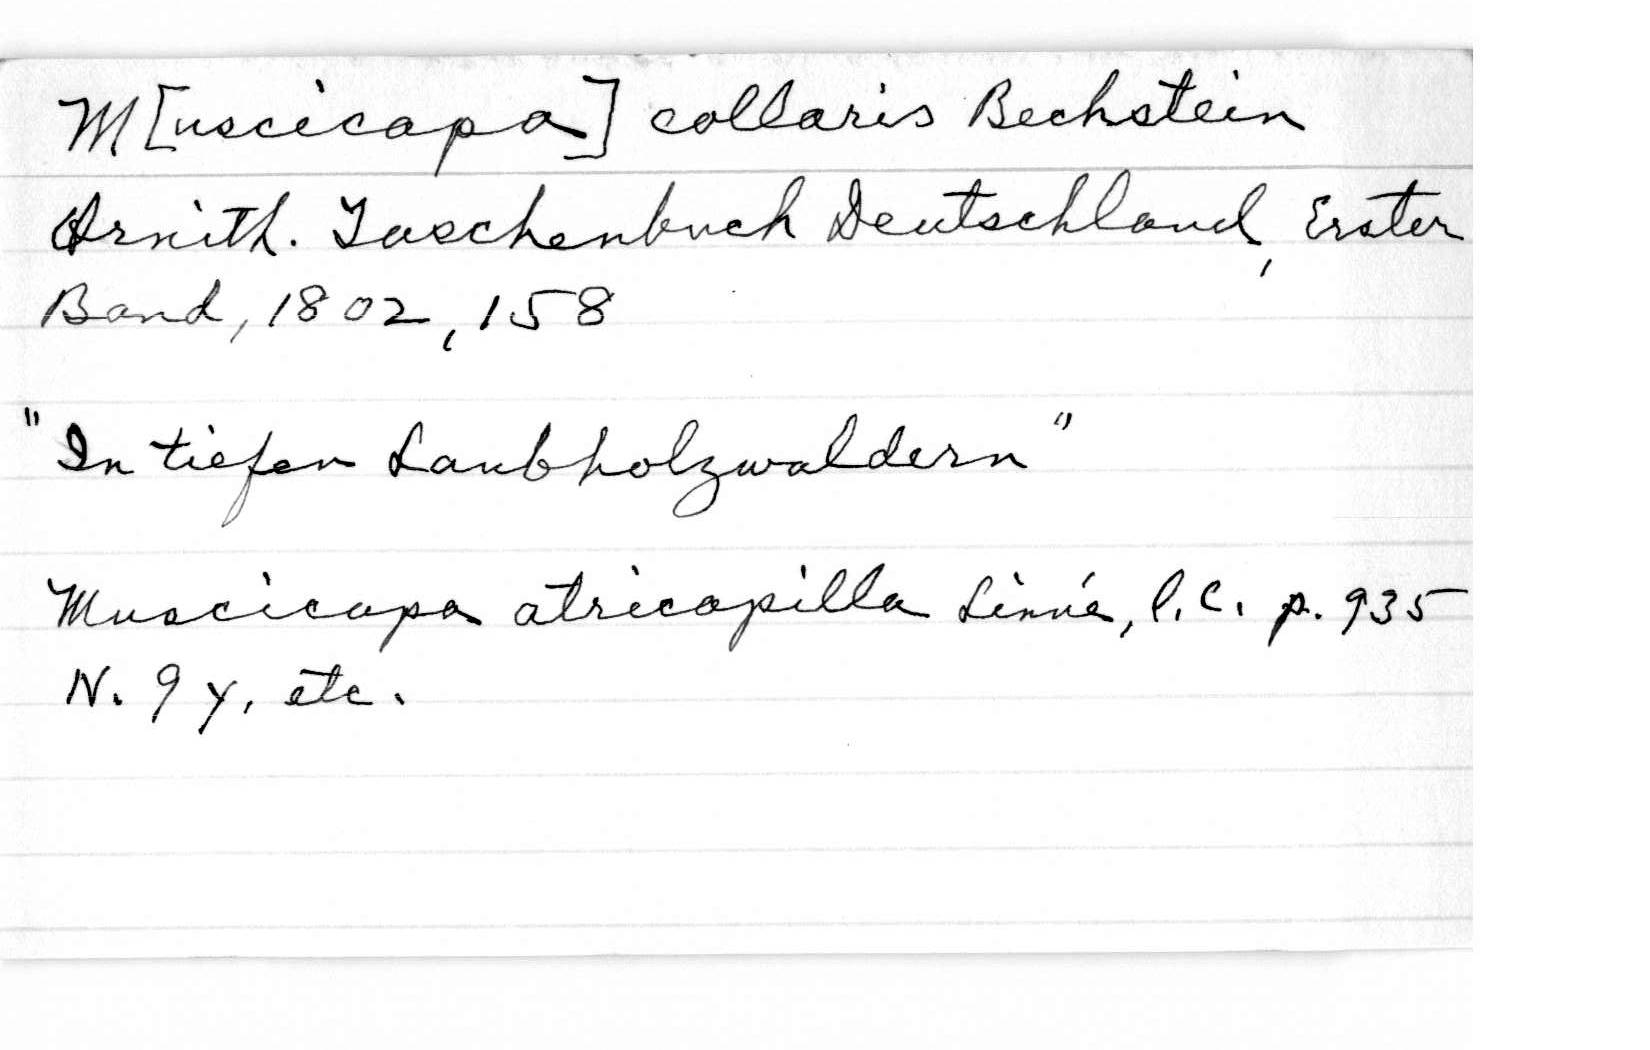 M[uscicapa] collaris Bechstein
Ornith. Taschenbuch Deutschland, Erster
Band, 1802, 158
"In tiefen Laubholzwaldern"
Muscicapa atricapilla Linné, l.c. p. 935
N. 9 γ, etc.